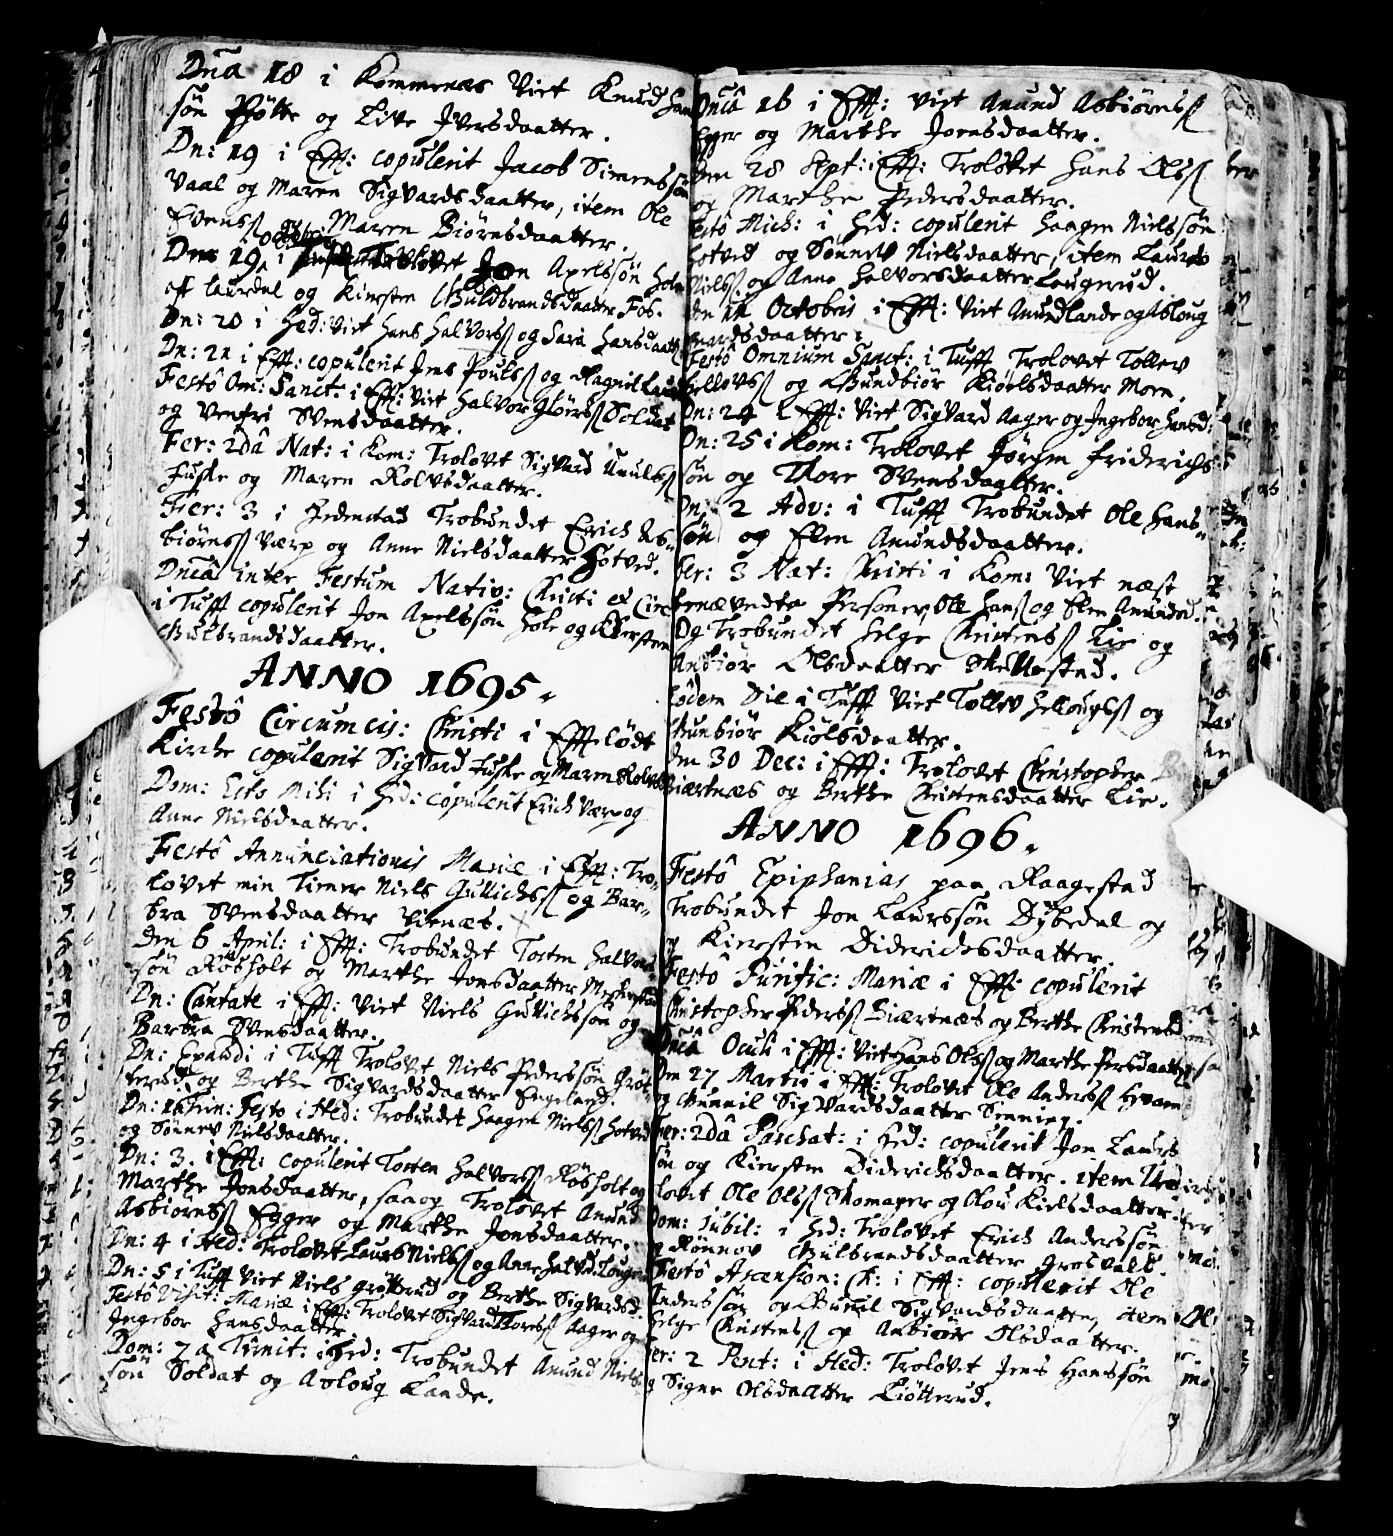 Dnca 18 i Kommenæs Viet Knud Han
søn Pøtte og Live Iversdaatter.
Dn: 19 i Efft: copulerit Jacob Simenssøn
Vaal og Maren Sigvardsdaatter, item Ole
Evenss og Maren Biørnsdaatter.
Dnn 19 i Trolovet Jon Axelssøn Hole
aff Laurdal og Kiersten Guldbrandsdaatter Fos.
Dn: 20 i Hed: Viet Hans Halvorss og Sara Hansdaatt
Dn: 21 i Efft: copulerit Jens Poulss og Ragnil
Festô Om: Sanct: i Efft: Viet Halvor Soldat
og Svensdaatter.
Fer: 2dâ Nat: i Kom: Trolovet Sigvard
Fuske og Maren Rolvsdaatter.
Fer: 3 i Hedenstad Trobundet Erich As-
biørnss Værp og Anne Nielsdaatter Hotved.
Dncâ inter Festum Nativ: Christi et Circ
i Tufft copulerit Jon Axelssøn Hole og Kiersten
Gulbrandsdaatter.
ANNO 1695.
Festô Circumcis: Christi i Efftelødt
Kirche copulerit Sigvard Fuske og Maren Rolvsd
Dom: Esto Mihi i Hed: copulerit Erich Værp og
Anne Nielsdaatter.
Festô Annunciationis Mariæ i Efft: Tro-
lovet min Tiener Niels Gullichss og Bar-
bra Svensdaatter
den 6 April: i Efft: Trobundet Tosten Halvors-
søn Røsholt og Marthe Jonsdaatter
Dn: Cantate i Efft: Viet Niels Gullichssøn og
Barbra Svensdaatter.
Dn: Exaudi i Tufft Trolovet Niels Pederssøn Grøt-
terud og Berthe Sigvardsdaatter Engeland.
Dn: Trin: Festo i Hed: Trobundet Haagen Nielss Hotved
og Sønnev Nielsdaatter.
Dn: 3. i Efft: copulerit Tosten Halvorss Røsholt og
Marthe Jonsdaatter, saa og Trolovet Amund
Asbiørnss Egger og Marthe Jonsdaatter.
Dn: 4 i Hed: Trolovet Laurs Nielss og Anne Halvd: Lougerud
Dn: 5 i Tufft Viet Niels Grøtterud og Berthe Sigvardsd.
Festô Visit: Mariæ i Efft: Trolovet Sigvard Toress Aager og
Ingebor Hansdaatter.
Dom: 7 a Trinit: i Hed: Trobundet Amund Niels-
søn Soldat og Asloug Lande.
Dncâ 16 i Efft: Viet Amund Asbiørnss
Egger og Marthe Jonsdaatter.
den 28 Sept: i Efft: Trolovet Hans Olss
og Marthe Pedersdaatter.
Festô Mich: i Hed: copulerit Haagen Nielssøn
Hotved og Sønnev Nielsdaatter, item Laurs
Nielss og Anne Halvorsdaatter Lougerud.
den Octobris i Efft: Viet Amund Lande og Asloug
Festô Omnium Sanct: i Tufft Trolovet Tollev
Hellovss og Gundbiør Kiølsdaatter Moen.
Dn: 24 i Efft: Viet Sigvard Aager og Ingebor Hansd:
Dn: 25 i Kom: Trolovet Jørgen Friderichs
søn og Thore Svensdaatter.
Dn: 2 Adv: i Tufft Trobundet Ole Hans-
søn og Ellen Amundsdaatter.
Fer: 3 Nat: Christi i Kom: Viet næst
benævnte Personer, Ole Hanss og Elen Amundsd.
Og Trobundet Helge Christenss Lie og
Anbiør Olsdaatter
Eodem Die i Tufft Viet Tollev Hellougss og
Gunbiør Kiølsdaatter.
den 30 Dec: i Efft: Trolovet Christopher
Biærtnæs og Berthe Christensdaatter Lie.
ANNO 1696.
Festô Epiphanias paa Raagestad
Trobundet Jon Laurssøn Dybedal og
Kiersten Diderichsdaatter.
Festô Purific: Mariæ i Efft: copulerit
Christopher Pederss Biærtnæs og Berthe Christensd
Dncâ Oculi i Efft: Viet Hans Olss og Marthe Persdaatter
Den 27 Martii i Efft: Trolovet Ole Anderss Hvam
og Gunnil Sigvardsdaatter Sinning.
Fer: 2dâ Paschat: i Hed: copulerit Jon Laurs
søn og Kiersten Diderichsdaatter. item Tro
lovet Ole Olss Skomager og Olou Kielsdaatter.
Dom: Jubil: i Hed: Trolovet Erich Anderssøn
og Rønnov Gulbrandsdaatter Grosvald.
Festô Ascension: Ch: i Efft: copulerit Ole
Anderssøn og Gunil Sigvardsdaatter, item
Helge Christenss og Anbiør Olsdaatter.
Fer: 2 Pent: i Hed: Trolovet Jens Hanssøn
og Signe Olsdaatter Liøtterud.